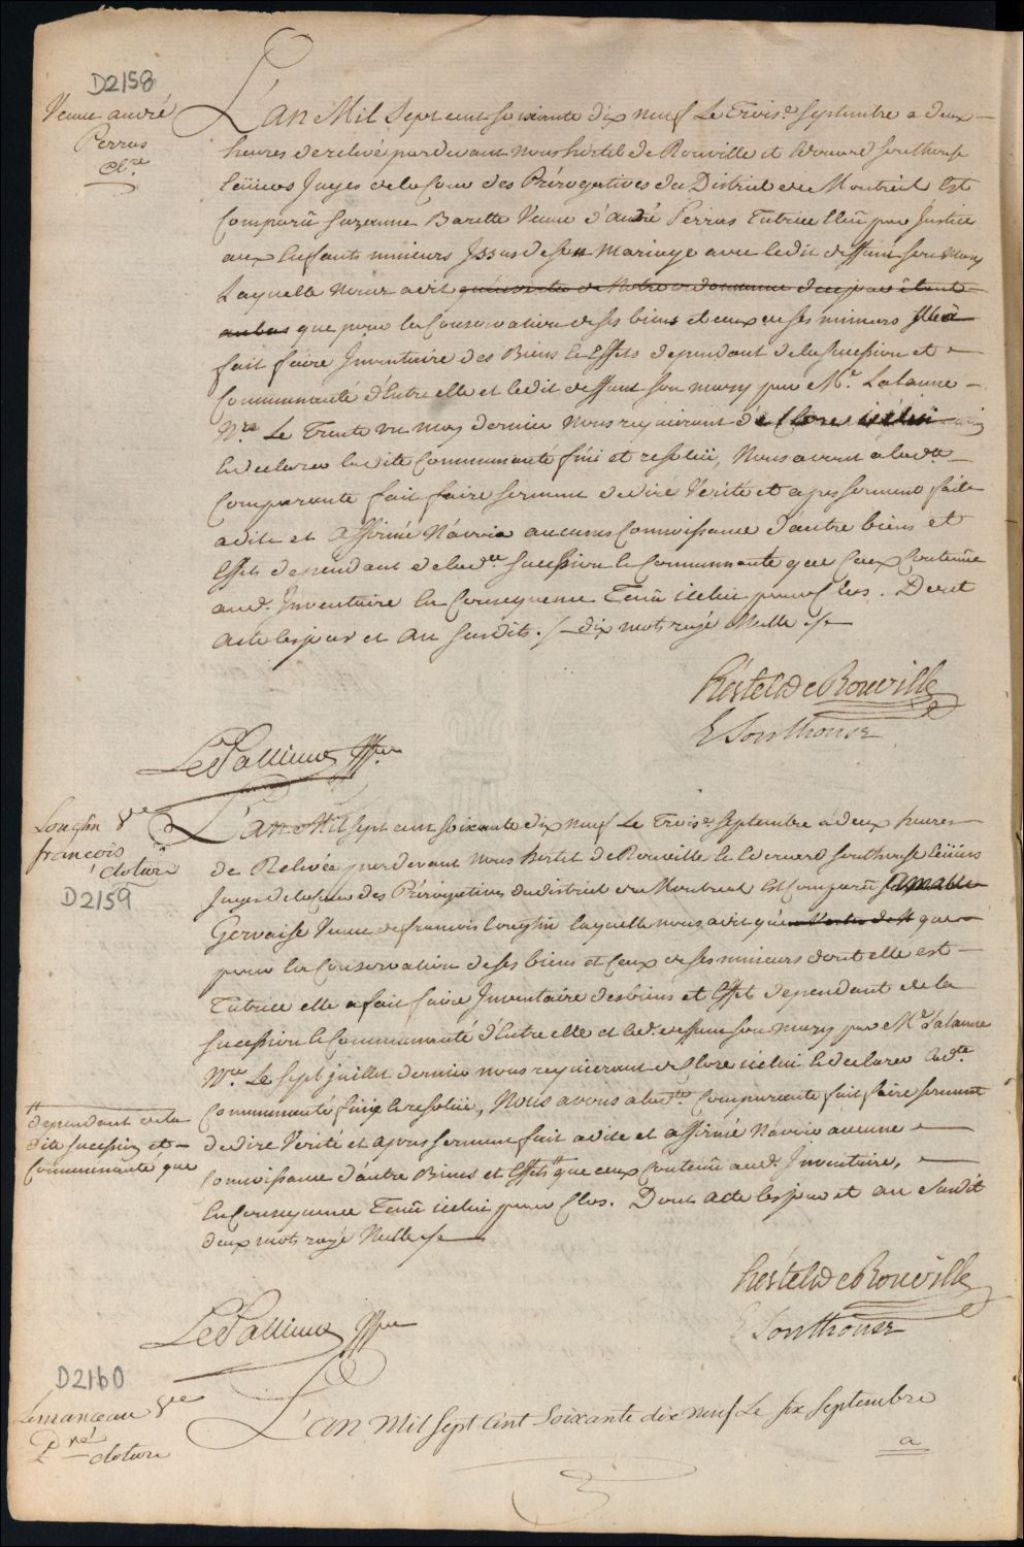 D2158
Veuve andré
Perras
Cl.re
L'an Mil Sept cent soixante dix neuf Le Trois.e Septembre a deux
heures de relevé pardevant nous hertel de Rouville et Edouard Southouse
Ecuiers Juges de la Cour des Prérogatives du District de Montréal Est
Comparüe Suzanne Barette Veuve d'andré Perras Tutrice Elüe par Justice
aux Enfants mineurs Issus de son Mariage avec ledit deffunt son mary
Laquelle nous a dit qu'en vertu de Notre ordonnance
que pour la Conservation de ses biens et ceux de ses mineurs Elle a
fait faire Inventaire des Biens & Effets dependant de la Sucession et
Communauté d'Entre elle et ledit deffunt son mary par M.e Lalanne
N.re Le Trente un may dernier nous requierant de Clore icelui
& declarer ladite Communauté fini et resolüe, Nous avons a lad.te
Comparante fait faire serment de diré Verité et apres serment fait
a dit et affirmé N'avoir aucunes Connoissance d'autre biens et
Effets dependant de lad.te Sucession & Communauté que Ceux Contenüe
aud. Inventaire En Consequence Tenû icelui pour Clos. Dont
acte les jour et an susdits. /. dix mots rayé Nulle ./.
hertel de Rouville
E Southouse
LePallieur Gffier
Longtin V.ve
francois
cloture
D2159
L'an Mil sept cent soixante dix neuf Le Trois.e Septembre a deux heures
de Relevée pardevant nous hertel de Rouville & Edouard Southouse Ecüiers
Juges de la Cour des Prérogatives du district de Montreal Est Comparüe amable
Gervaise Veuve de francois Longtin laquelle nous a dit que
pour la Conservation de ses biens et Ceux de ses mineurs dont elle est
Tutrice elle a fait faire Inventaire des biens et Effets dependant de la
Sucession & Communauté d'Entre elle et led. deffunt son mary par M.e Lalanne
N.re Le Sept juillet dernier nous requierant de Clore icelui & declarer lad.te
Communauté finie & resolüe, Nous avons a lad.te Comparante fait faire serment
de dire Verité et apres serment fait a dit et affirmé N'avoir aucune
Connoissance d'autre Biens et Effets # que ceux Contenü aud. Inventaire,
En Consequence Tenû icelui pour Clos. Dont acte les jour et an Susdit
deux mots rayé Nulle ./.
# dependant de la
dite sucession et
Communauté que
hertel de Rouville
E Southouse
LePallieur Gffier
D2160
Lemanceau V.ve
cloture
L'an Mil Sept Cent Soixante dix Neuf Le Six Septembre
a